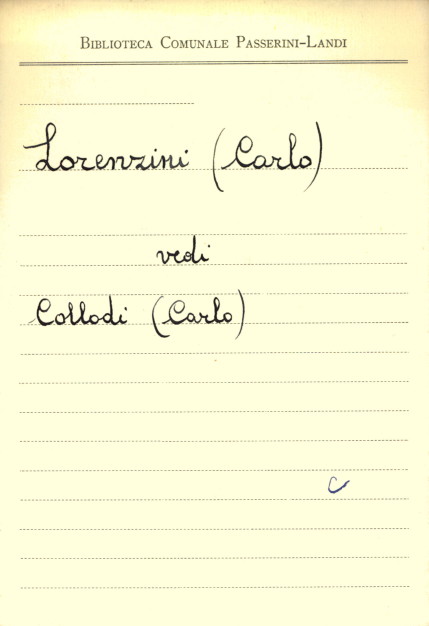 Biblioteca Comunale Passerini-Landi
Lorenzini (Carlo)
vedi
Collodi (Carlo)
C